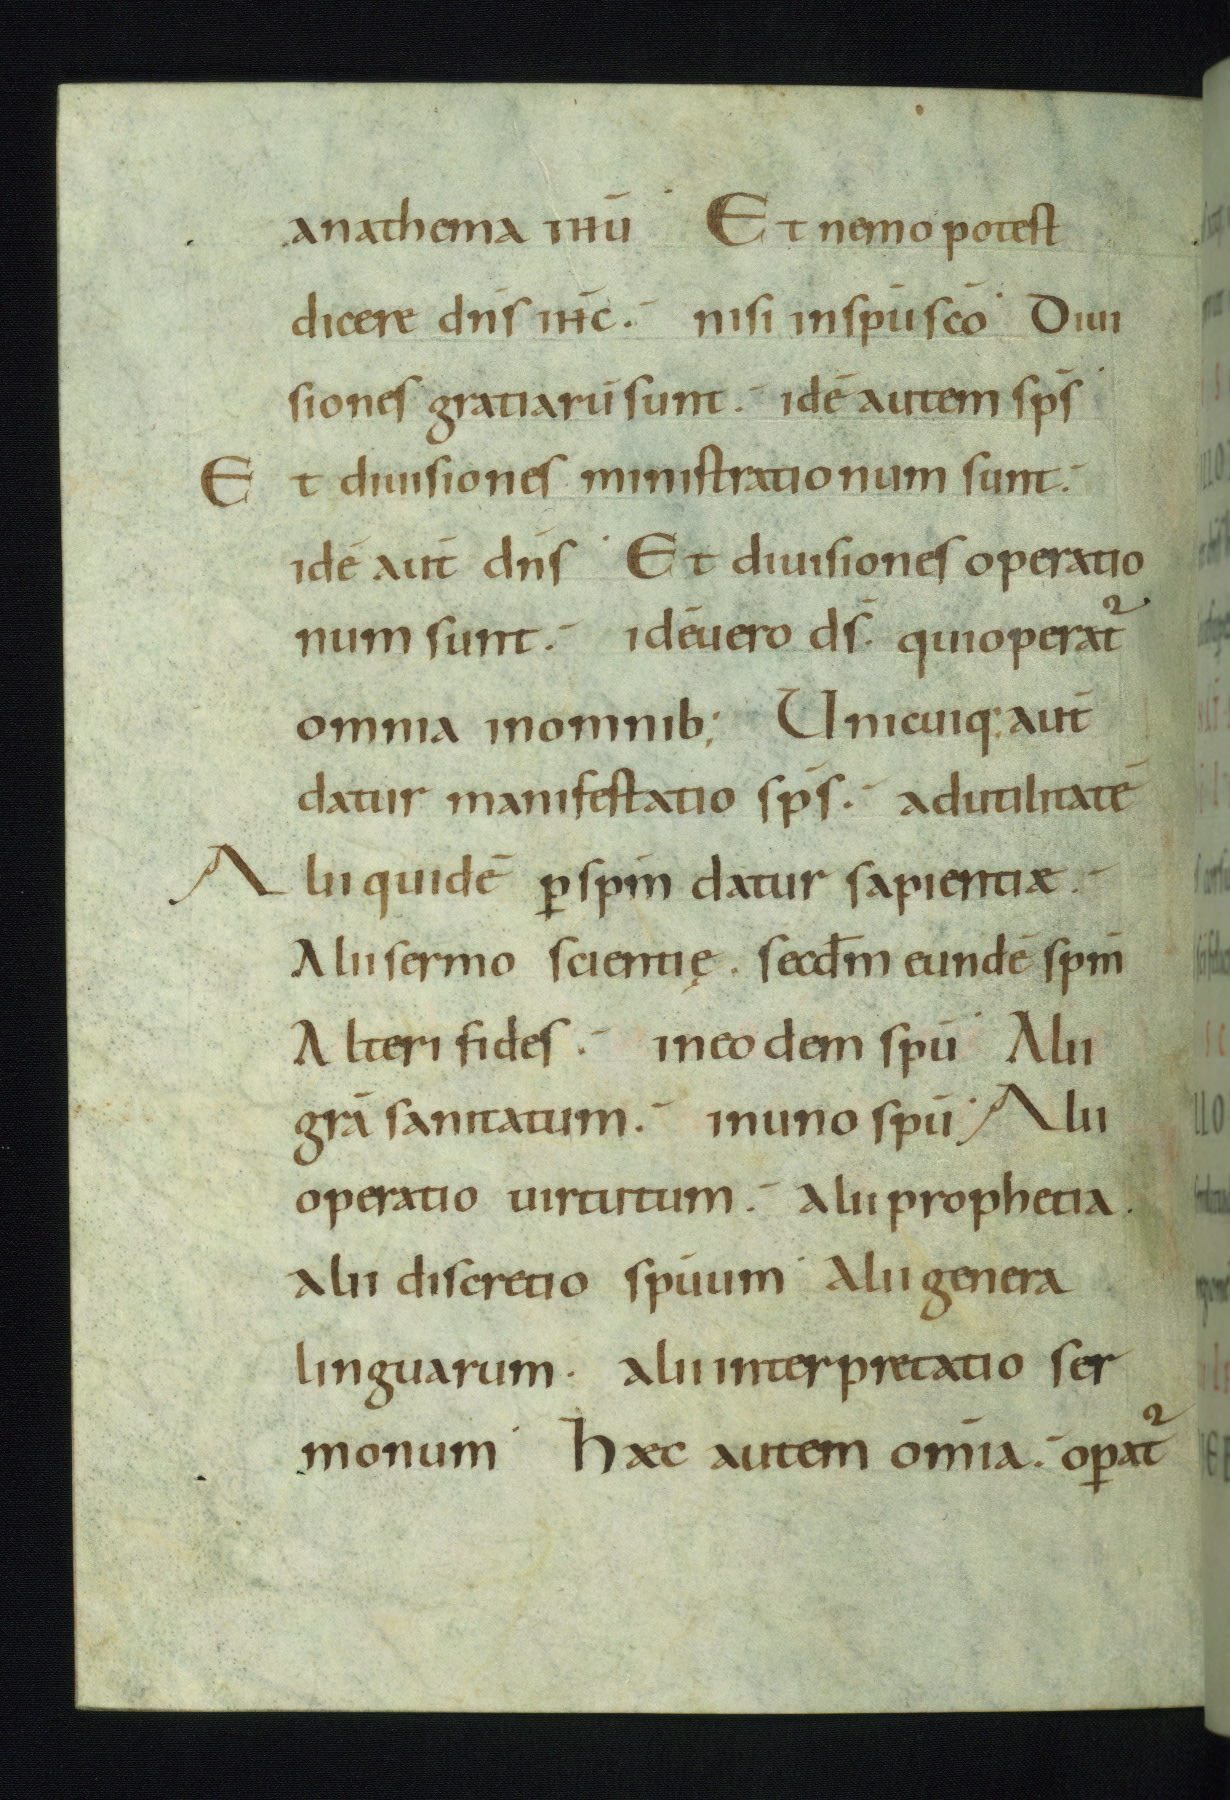 anathema ihū· Et nemo potest
dicere dn̄s ihc̄·- nisi in spū scō· Diui
siones gratiarū sunt·- idē autem sp̄s·
Et diuisiones ministrationum sunt·-
idē aut̄ dn̄s· Et diuisiones operatio
num sunt·- idē uero d̄s· qui operat᷑
omnia in omnib; Unicuiq; aut̄
datur manifestatio sp̄s·- ad utilitatē
Alii quidē ꝑ spm̄ datur sapientiæ·-
Alii sermo scientię· secd̄m eundē spm̄
Alteri fides·- in eodem spū· Alii
grā sanitatum·- in uno spū· Alii
operatio uirtutum·- alii prophetia·
alii discretio spūum· Alii genera
linguarum· alii interpretatio ser
monum· Haec autem om̄ia·- oꝑat᷑